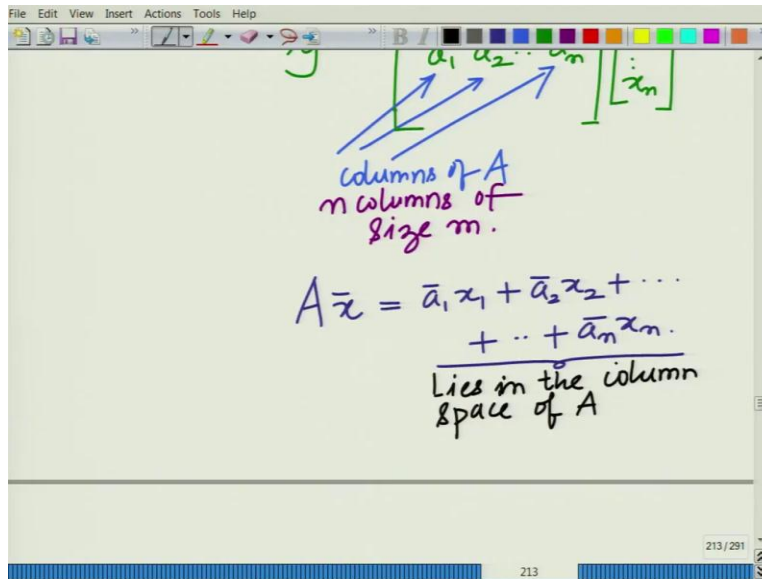 File Edit View Insert Actions Tools Help
B I
y [a₁ a₂ ·· aₙ] [⋮ xₙ]
columns of A
n columns of
size m.
A x̄ = ā₁x₁ + ā₂x₂ + ···
+ ·· + āₙxₙ.
Lies in the column
space of A
213/291
213